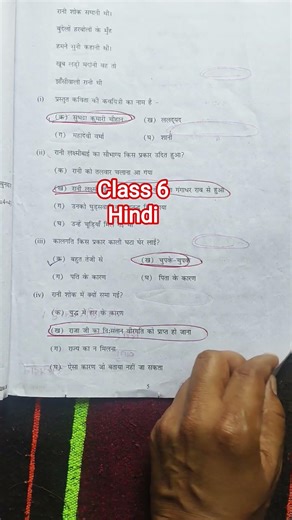 रानी शोक समानी थी।
बुंदेलों हरबोलों के मुँह
हमने सुनी कहानी थी।
खूब लड़ी मर्दानी वह तो
झाँसीवाली रानी थी।
(i) प्रस्तुत कविता की कवयित्री का नाम है -
(क) सुभद्रा कुमारी चौहान (ख) ललद्यद
(ग) महादेवी वर्मा (घ) रानी
(ii) रानी लक्ष्मीबाई का सौभाग्य किस प्रकार उदित हुआ?
(क) रानी को तलवार चलाना आ गया
(ख) रानी गंगाधर राव से हुआ
Class 6
Hindi
(ग) उनको
(घ) उन्हें चूड़ियाँ
(iii) कालगति किस प्रकार काली घटा घेर लाई?
(क) बहुत तेजी से (ख) चुपके-चुपके
(ग) पति के कारण (घ) पिता के कारण
(iv) रानी शोक में क्यों समा गई?
(क) युद्ध में हार के कारण
(ख) राजा जी का निःसंतान वीरगति को प्राप्त हो जाना
(ग) राज्य का न मिलना
(घ) ऐसा कारण जो बताया नहीं जा सकता
5